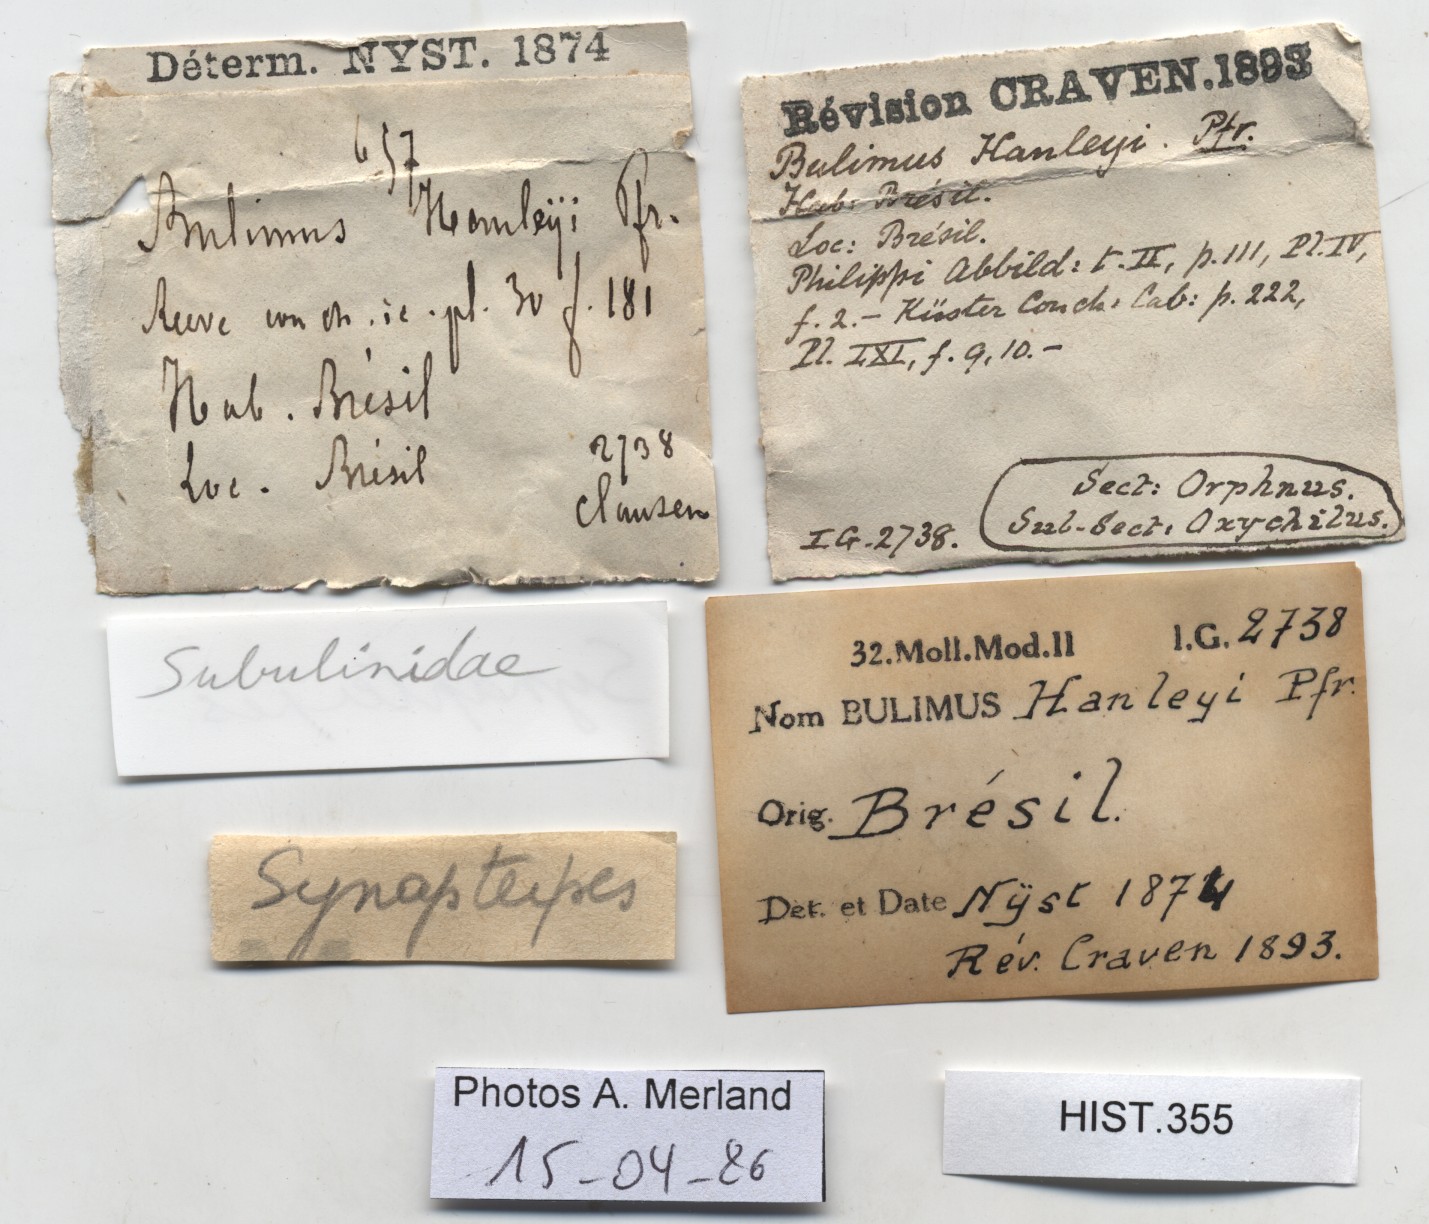 Déterm. NYST. 1874
657
Bulimus Hanleÿi Pfr.
Reeve conch. ic. pl. 30 f. 181
Hab. Brésil
Loc. Brésil
2738
Clausen
Révision CRAVEN.1893
Bulimus Hanleyi. Pfr.
Hab: Brésil.
Loc: Brésil.
Philippi Abbild: t. II, p. 111, Pl. IV,
f. 2. – Küster Conch: Cab: p. 222,
Pl. LXI, f. 9, 10. –
Sect: Orphnus.
Sub-Sect: Oxychilus.
I.G. 2738.
Subulinidae
32.Moll.Mod.II I.G. 2738
Nom BULIMUS Hanleyi Pfr.
Orig. Brésil.
Det. et Date Nÿst 1874
Rév. Craven 1893.
Synapterpes
Photos A. Merland
15-04-26
HIST.355